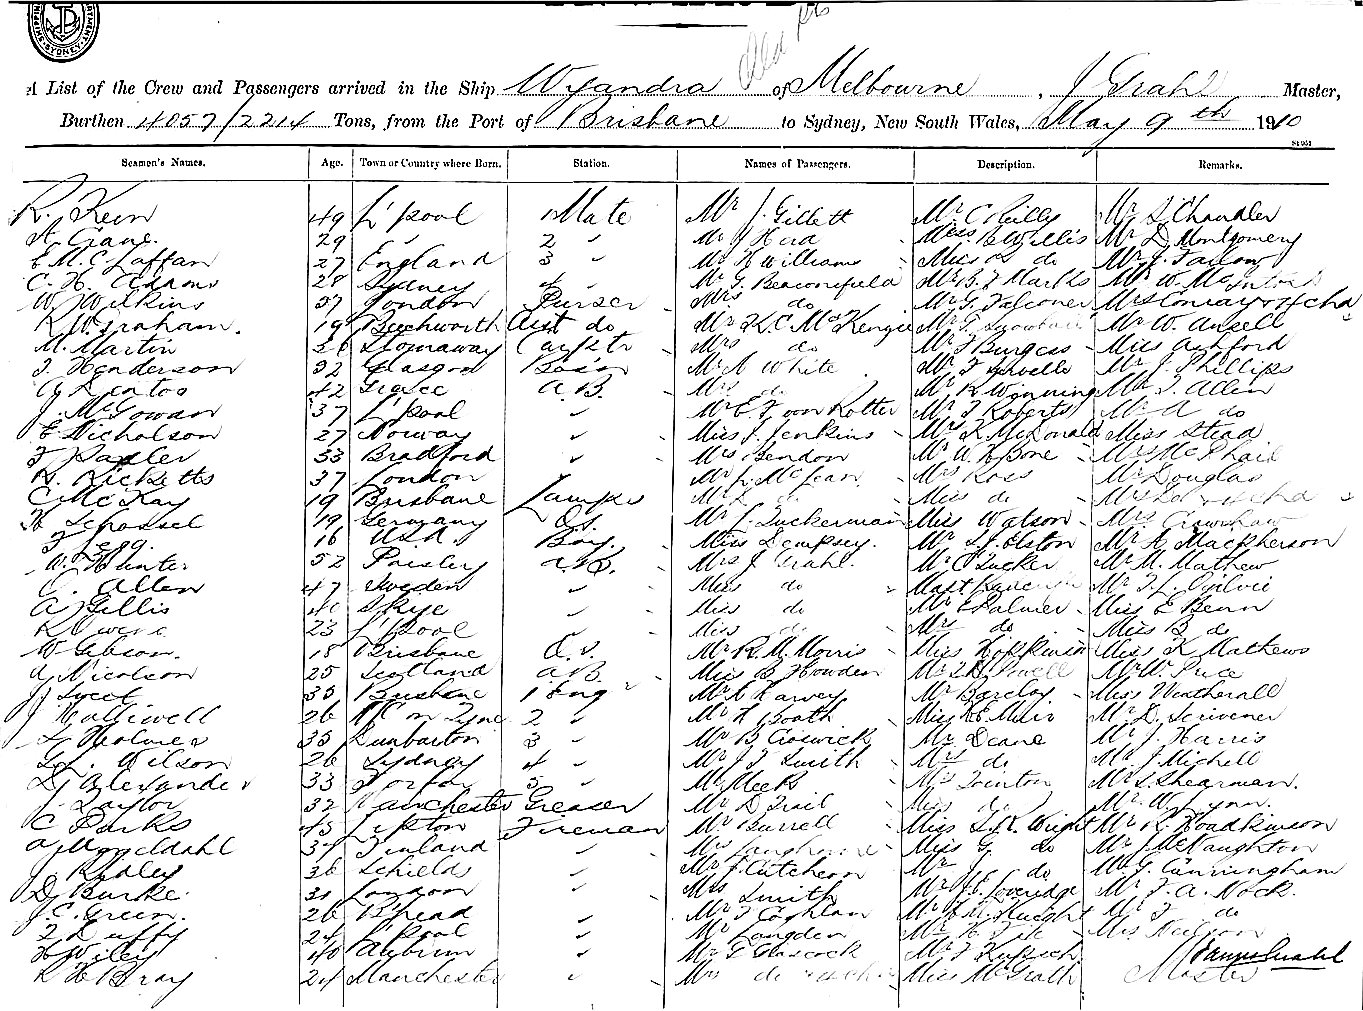 SHIPPING SYDNEY
A List of the Crew and Passengers arrived in the Ship Wyandra of Melbourne, J Grahl Master,
Burthen 4057/2214 Tons, from the Port of Brisbane to Sydney, New South Wales, May 9th 1910
Seamen's Names. Age. Town or Country where Born. Station. Names of Passengers. Description. Remarks.
R. Keen 49 L'pool 1 Mate Mr J. Gillett Mr C Reilly Mr S Chandler
A Crane. 29 " 2 " Mr J Herd Miss B Willis Mr D Montgomery
E. M. C. Laffan 27 England 3 " Mr H Williams Miss do Mr J. Farlow
C. H. Adams 28 Sydney 4 " Mr G Beaconsfield Mr B. J Marks Mr W. McIntosh
W. Wilkins 37 London Purser Mrs do Mr G. Falconer Mrs Conway & chd
R. W. Graham. 19 Beechworth Asst do Mr K. C McKenzie Mr W. Ansell
M. Martin 36 Stornaway Carptr Mrs do Mr J Burgess Miss Ashford
J. Henderson 32 Glasgow Bosun Mr A White Mr J. Phillips
42 Greece A. B. Mrs do Mr R Winning Mr J. Allen
J. McGowan 37 L'pool " Mr E. F von Rotter Mr J Roberts Mr A do
E Nicholson 27 Norway " Miss J. Jenkins Mr K McDonald Miss Stead
33 Bradford " Mrs Bendon Mr W. H Bone Mrs McPhail
R. Ricketts 37 London " Mr L. McLean Mrs Ross Mr Douglas
C. McKay 19 Brisbane Lamps Miss do Mrs do & chd
H Schossel 19 Germany O.s. Mr J. Zuckerman Miss Watson Mrs Crawshaw
16 U.S.A. Boy. Miss Dempsey. Mr S. J. Elston Mr A Mackherson
W. Hunter 52 Paisley A.B. Mrs J Grahl. Mr C Tucker Mr M. Mathew
C. Allen 47 Sweden " Miss do Mr J. L. Ogilvie
A Gillis 40 Skye " Miss do Mr E Palmer Miss E Benn
R Owens 23 L'pool " Miss do Mrs do Miss B do
W Gibson. 18 Brisbane O.s. Mr R. M. Morris Miss Hopkinson Miss K Mathews
A Nicolson 25 Scotland A.B. Miss B Howden Mr W. Price
J Sweet 35 Brisbane 1 Eng Mr C Harvey Mr Barclay Miss Weatherall
J Halliwell 26 N'C on Tyne 2 " Mr H Booth Miss E Muir Mr D. Scrivener
Holmes 35 Dunbarton 3 " Mr B Croswick Mr Deane Mr J. Harris
Wilson 26 Sydney 4 " Mr J. T Smith Mrs do Mr J Michell
D. Alexander 33 Forfar 5 " Mr Meeks Mrs Quinton Mr S. Shearman.
J. Taylor 32 Manchester Greaser Mr D Trail Miss do Mr W. Lynn.
C Parks 43 Fireman Mr Burrell Miss S. K. Wright Mr R. Hoadkinson
37 Finland " Mrs Langhorne Miss G. do Mr J McNaughton
J Ridley 36 Schields " Mr J Cutcheon Mr J. do Mr G. Cunningham
D. Burke. 31 London " Mrs Smith Mr J. E. Loveridge Mr F. A. Nock.
J. C. Green. 26 B'head " Mr J Coghlan Mr E. M. Knight Mr F do
J Duffy 24 L'pool " Mr Langden Miss Neilson
H Wiley 40 Auburn " Mr G Glascock
R H Bray 24 Manchester " Mrs do Miss McGrath Master